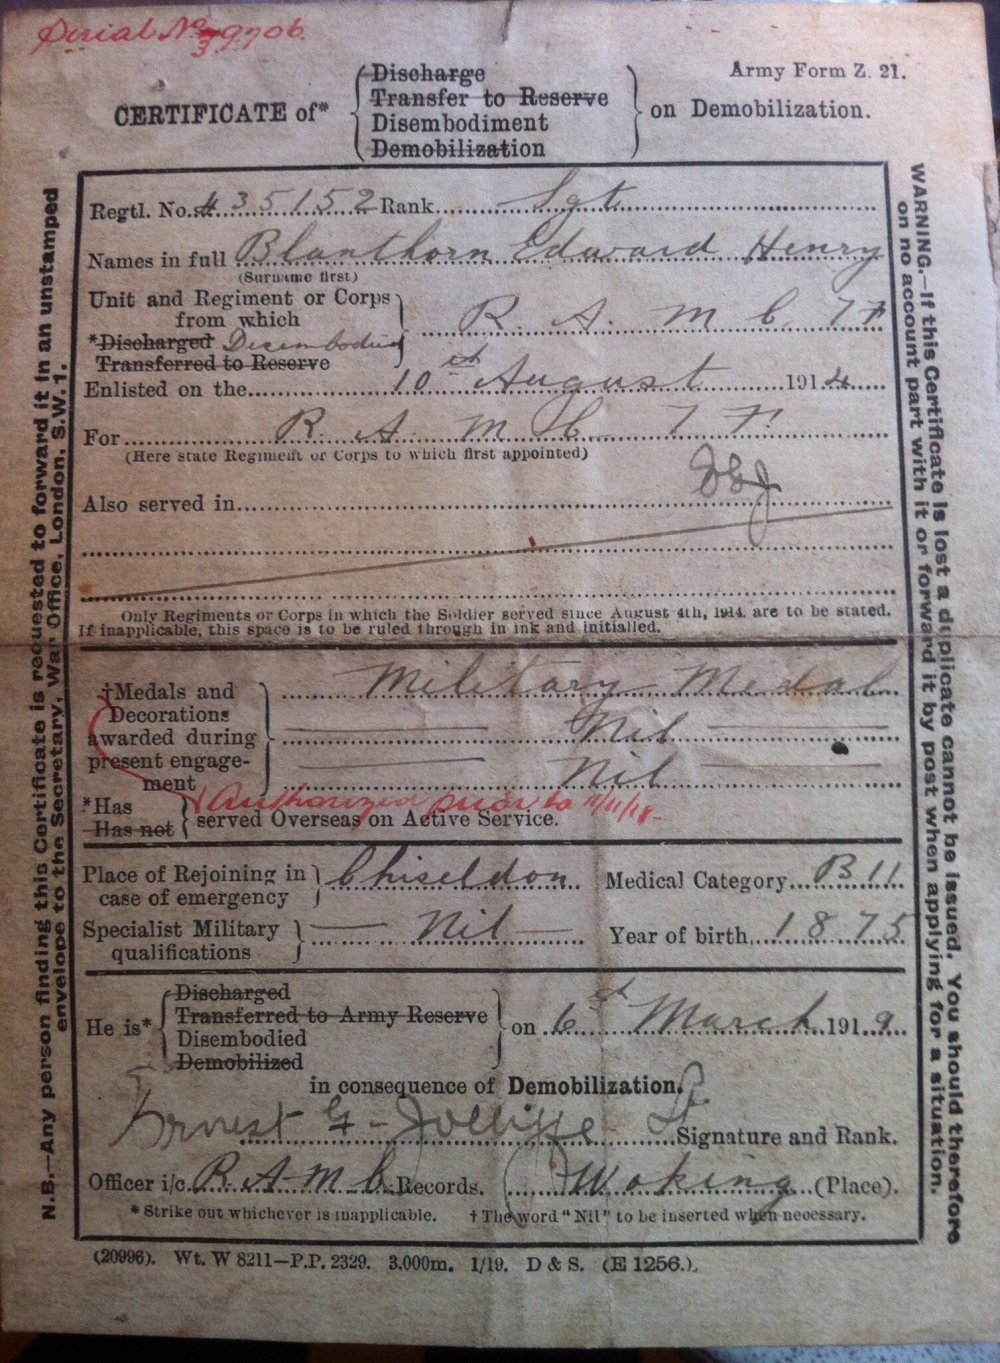 Serial No 39706.
Army Form Z. 21.
CERTIFICATE of* { Discharge
Transfer to Reserve
Disembodiment
Demobilization } on Demobilization.
Regtl. No. 435152 Rank Sgt
Names in full Blanthorn Edward Henry
(Surname first)
Unit and Regiment or Corps
from which
*Discharged Disembodied
Transferred to Reserve } R. A. M. C. T F
Enlisted on the 10st August 1914
For R A M C T F.
(Here state Regiment or Corps to which first appointed)
EGJ
Also served in
Only Regiments or Corps in which the Soldier served since August 4th, 1914, are to be stated.
If inapplicable, this space is to be ruled through in ink and initialled.
†Medals and
Decorations
awarded during
present engage-
ment } Military Medal
Nil
Nil
Authorized prior to 11/11/18-
*Has
Has not { served Overseas on Active Service.
Place of Rejoining in
case of emergency } Chiseldon Medical Category B 11
Specialist Military
qualifications } — Nil — Year of birth 1875
He is* { Discharged
Transferred to Army Reserve
Disembodied
Demobilized } on 6st March 1919
in consequence of Demobilization.
Ernest G. Jolliffe Lt Signature and Rank.
Officer i/c R A M C Records. Woking (Place).
* Strike out whichever is inapplicable. † The word "Nil" to be inserted when necessary.
(20996). Wt. W 8211—P.P. 2329. 3.000m. 1/19. D & S. (E 1256.).
N.B.—Any person finding this Certificate is requested to forward it in an unstamped
envelope to the Secretary, War Office, London, S.W. 1.
WARNING.—If this Certificate is lost a duplicate cannot be issued. You should therefore
on no account part with it or forward it by post when applying for a situation.